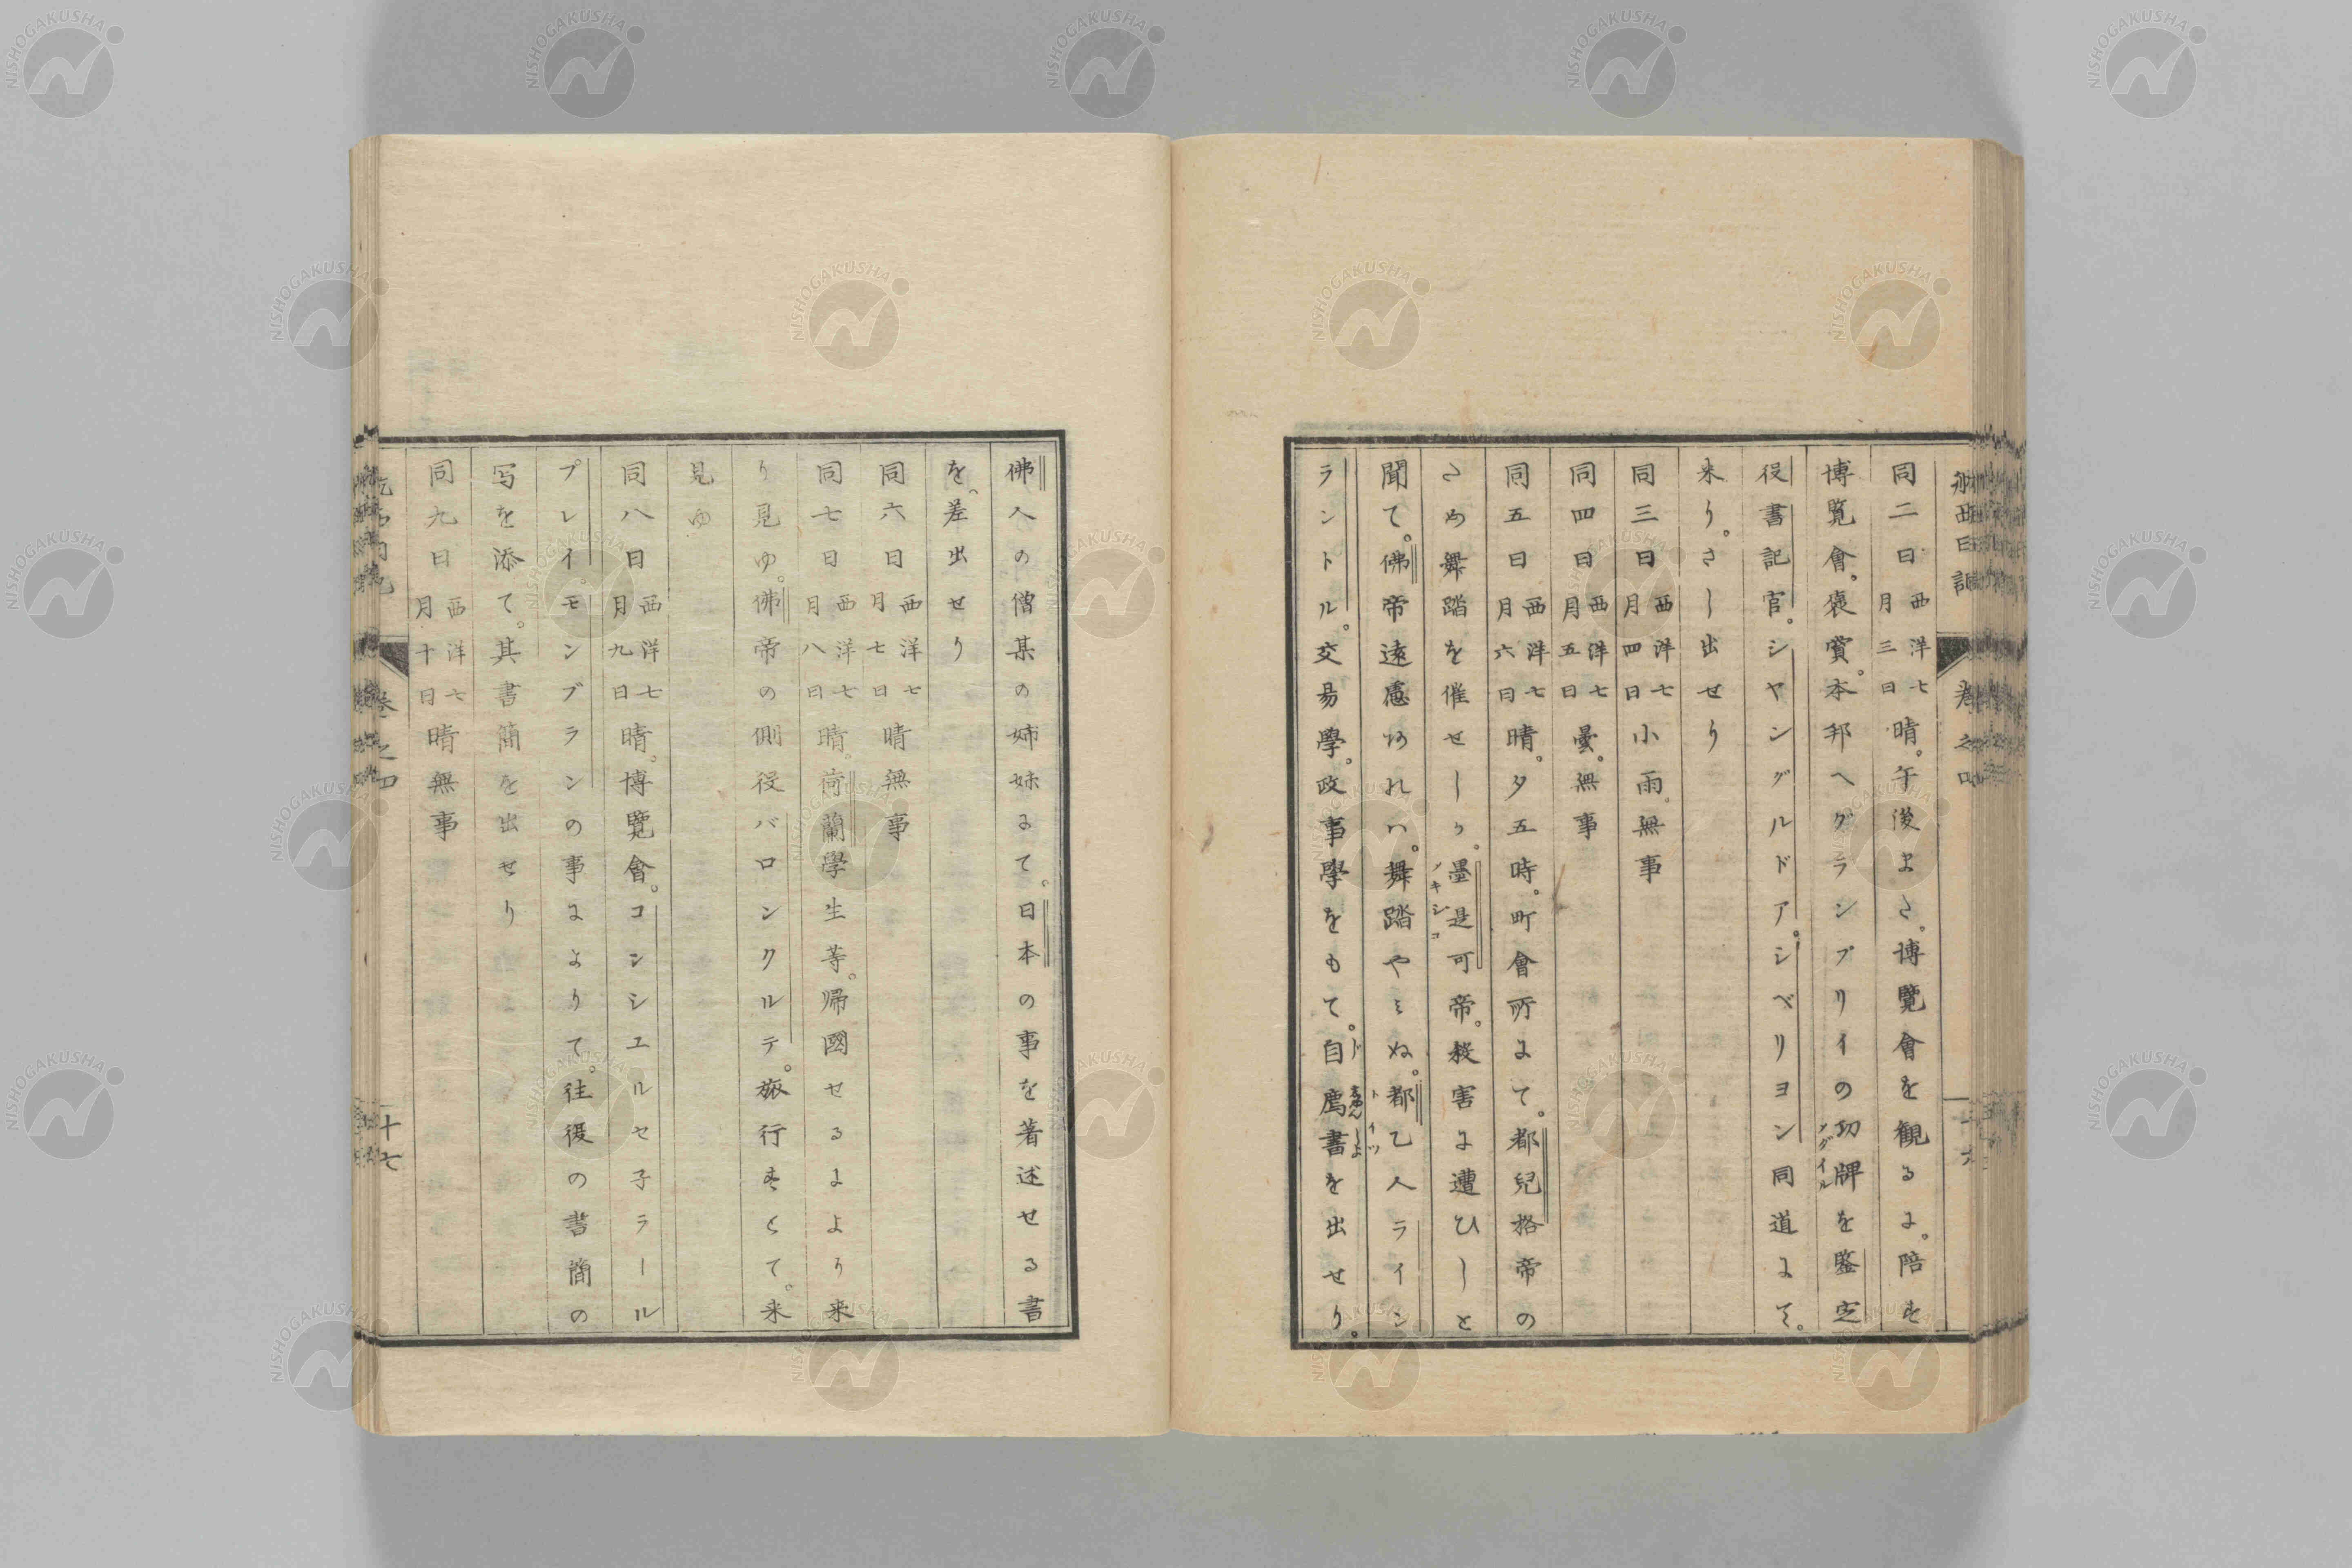 航西日記 巻之四 十六
同二日西洋七月三日晴。午後よさ。博覧會を観るよ。陪す
博覧會。褒賞。本邦へグランプリイの功牌を鑒定
役書記官。シヤングルドア。シベリヨン同道よて。
来り。さし出せり
同三日西洋七月四日小雨。無事
同四日西洋七月五日曇。無事
同五日西洋七月六日晴。夕五時。町會所よて。都兒格帝の
さめ舞踏を催せしヶ。墨是可帝。殺害よ遭ひしと
メキシコ
聞て。佛帝遠慮あれハ。舞踏やミぬ。都乙人ライン
トイツ
ラントル。交易學。政事學をもて。自鷹書を出せり。
佛人の僧某の姉妹よて。日本の事を著述せる書
を。差出せり
同六日西洋七月七日晴無事
同七日西洋七月八日晴。荷蘭學生等。帰國せるよより来
り見ゆ。佛帝の側役バロンクルテ。旅行すとて。来
見ゆ
同八日西洋七月九日晴。博覽會。コンシエルセ子ラール
プレイ。モンブランの事よよりて。往復の書簡の
写を添て。其書簡を出せり
同九日西洋七月十日晴無事
巻之四 十七